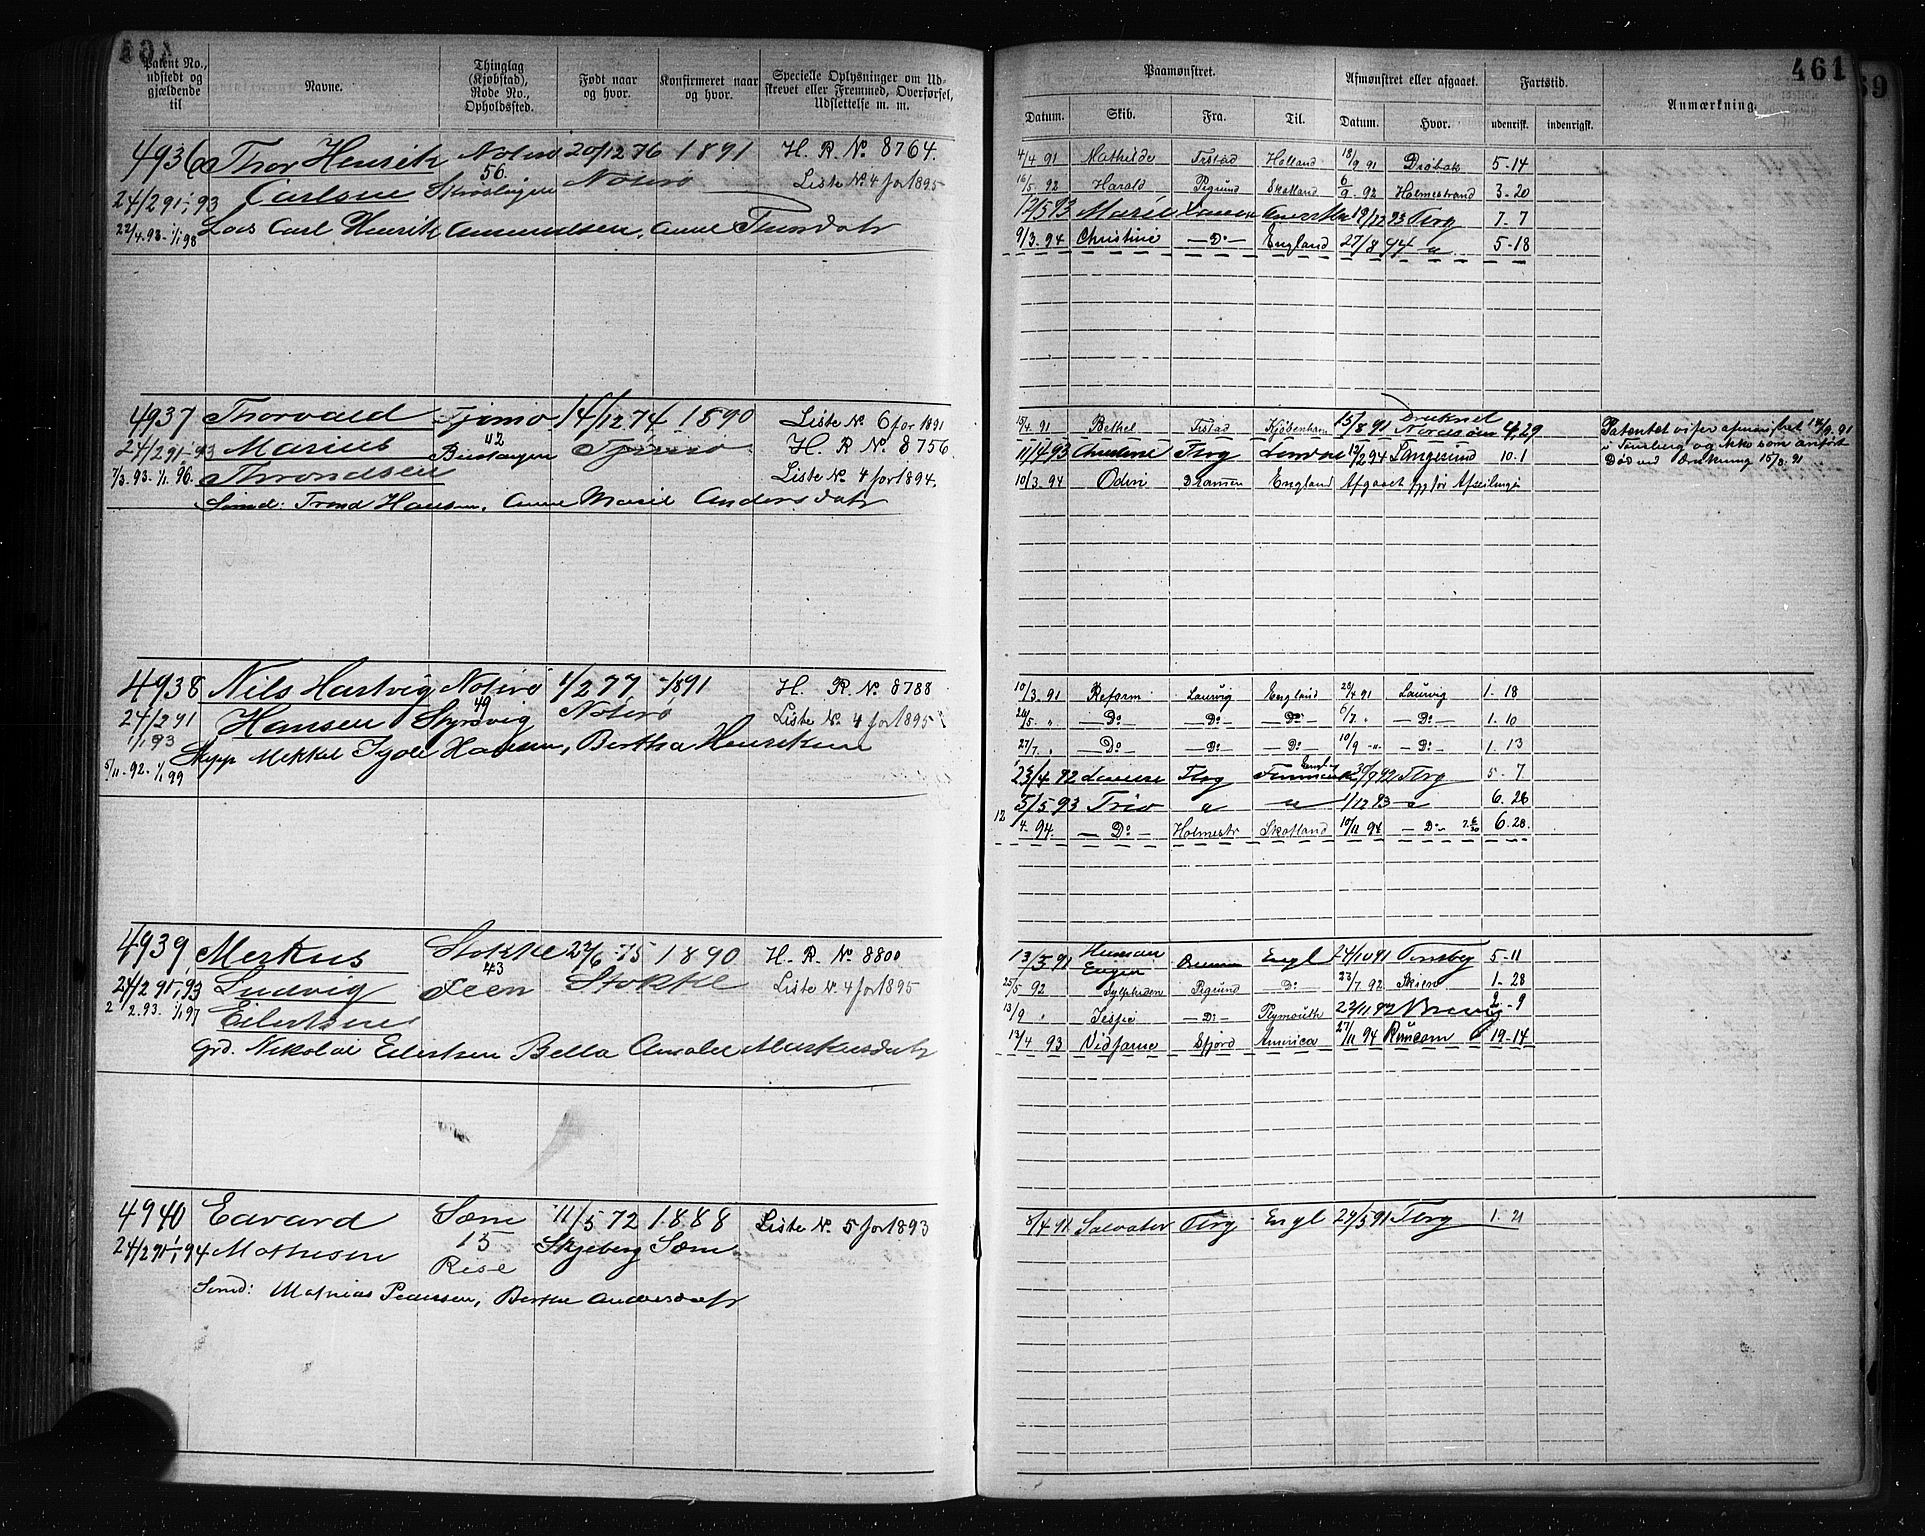 461
Patent No., udstedt og gjældende til
Navne.
Thinglag (Kjøbstad), Rode No., Opholdssted.
Født naar og hvor.
Konfirmeret naar og hvor.
Specielle Oplysninger om Udskrevet eller Fremmed, Overførsel, Udslettelse m. m.
Paamønstret.
Afmønstret eller afgaaet.
Fartstid.
Anmærkning.
Datum. Skib. Fra. Til. Datum. Hvor. udenrisk. indenrigsk.
4936 Thor Henrik Nøterø 20/12 76 1891 H. R. No. 8764.
56.
Carlsen Nøterø Liste No. 4 for 1895
24/2 91-1/1 93
22/4. 93- 1/1 98 Los Carl Henrik Amundsen, Anne Thorsdatr
4/4 91 Mathilde Frstad Holland 18/9 91 Drøbak 5-14
16/5. 92 Harald Pgrund Skotland 6/9 92 Holmestrand 3-20
12/5 93 Marie 19/12 93 Tbrg 7-7
9/3. 94 Christine — Do — England 27/8 94 " 5-18
4937 Thorvald Tjømø 14/12 74 1890 Liste No. 6 for 1891
24/2 91-1/1 93 Marius 42 Tjømø H. R No. 8756
7/3. 93- 1/1. 96. Throndsen Liste No. 4 for 1894.
Sømd: Trond Hansen, Anne Marie Andersdatr
15/4. 91 Bethel Frstad Kjøbenhavn 15/8 91 Druknet Nordsøen 4,29
11/4 93 Christine Tbrg London 13/2 94 Langesund 10-1
10/3. 94 Odin Dramen England Afgaaet før Afseilingen
Patentet viser afmønstret 14/9. 91
i Tønsberg og ikke som anført
Død ved Drukning 15/8. 91
4938 Nils Hartvig Nøterø 1/2 77 1891 H. R. No. 8788
24/2 91 Hansen 49 Nøterø Liste No. 4 for 1895
1/1 93
5/11-92- 1/1 99 Skipp Mekkel Hansen, Bertha Henriksen
10/3. 91 Reform Laurvig England 28/4 91 Laurvig 1-18
26/5. " — Do — — Do — — Do — 6/7. " — Do — 1-10
27/7. " — Do — — Do — — Do — 10/9 -"- — Do — 1-13
23/4 92 Tbrg 30/9 92 Tbrg 5-7
5/5 93 Trio " " 1/12 93 " 6.26
12/4. 94. — Do — Holmestr Skotland 10/11 94 — Do — 6.28
4939 Merkus Stokke 22/6 75 1890 H. R. No. 8800
24/2 91-1/1 93 Ludvig 43 Feen Stokke Liste No. 4 for 1895
2/2.93.- 1/1 97 Eilertsen
Grd. Nikolai Eilertsen Bella Amalie Merkusdatr
13/3 91 Engl 24/10 91 Tønsbg 5-11
25/5 92 Sylphiden Pgrund — Do — 23/7 92 Skien 1-28
13/9 " — Do — Plymouth 23/11 92 2-9
13/4 93 Vidfarne Sfjord Amerika 27/11 94 Runcorn 19-14
4940 Edvard Sæm 11/5 72 1888 Liste No. 5 for 1893
24/2 91-1/1 94 Mathisen 15 Skjeberg Sæm
Rise
Sømd: Mathias Pedersen, Berthe Andersdatr
8/4 91 Salvator Tbrg Engl 29/5 91 Tbrg 1-21